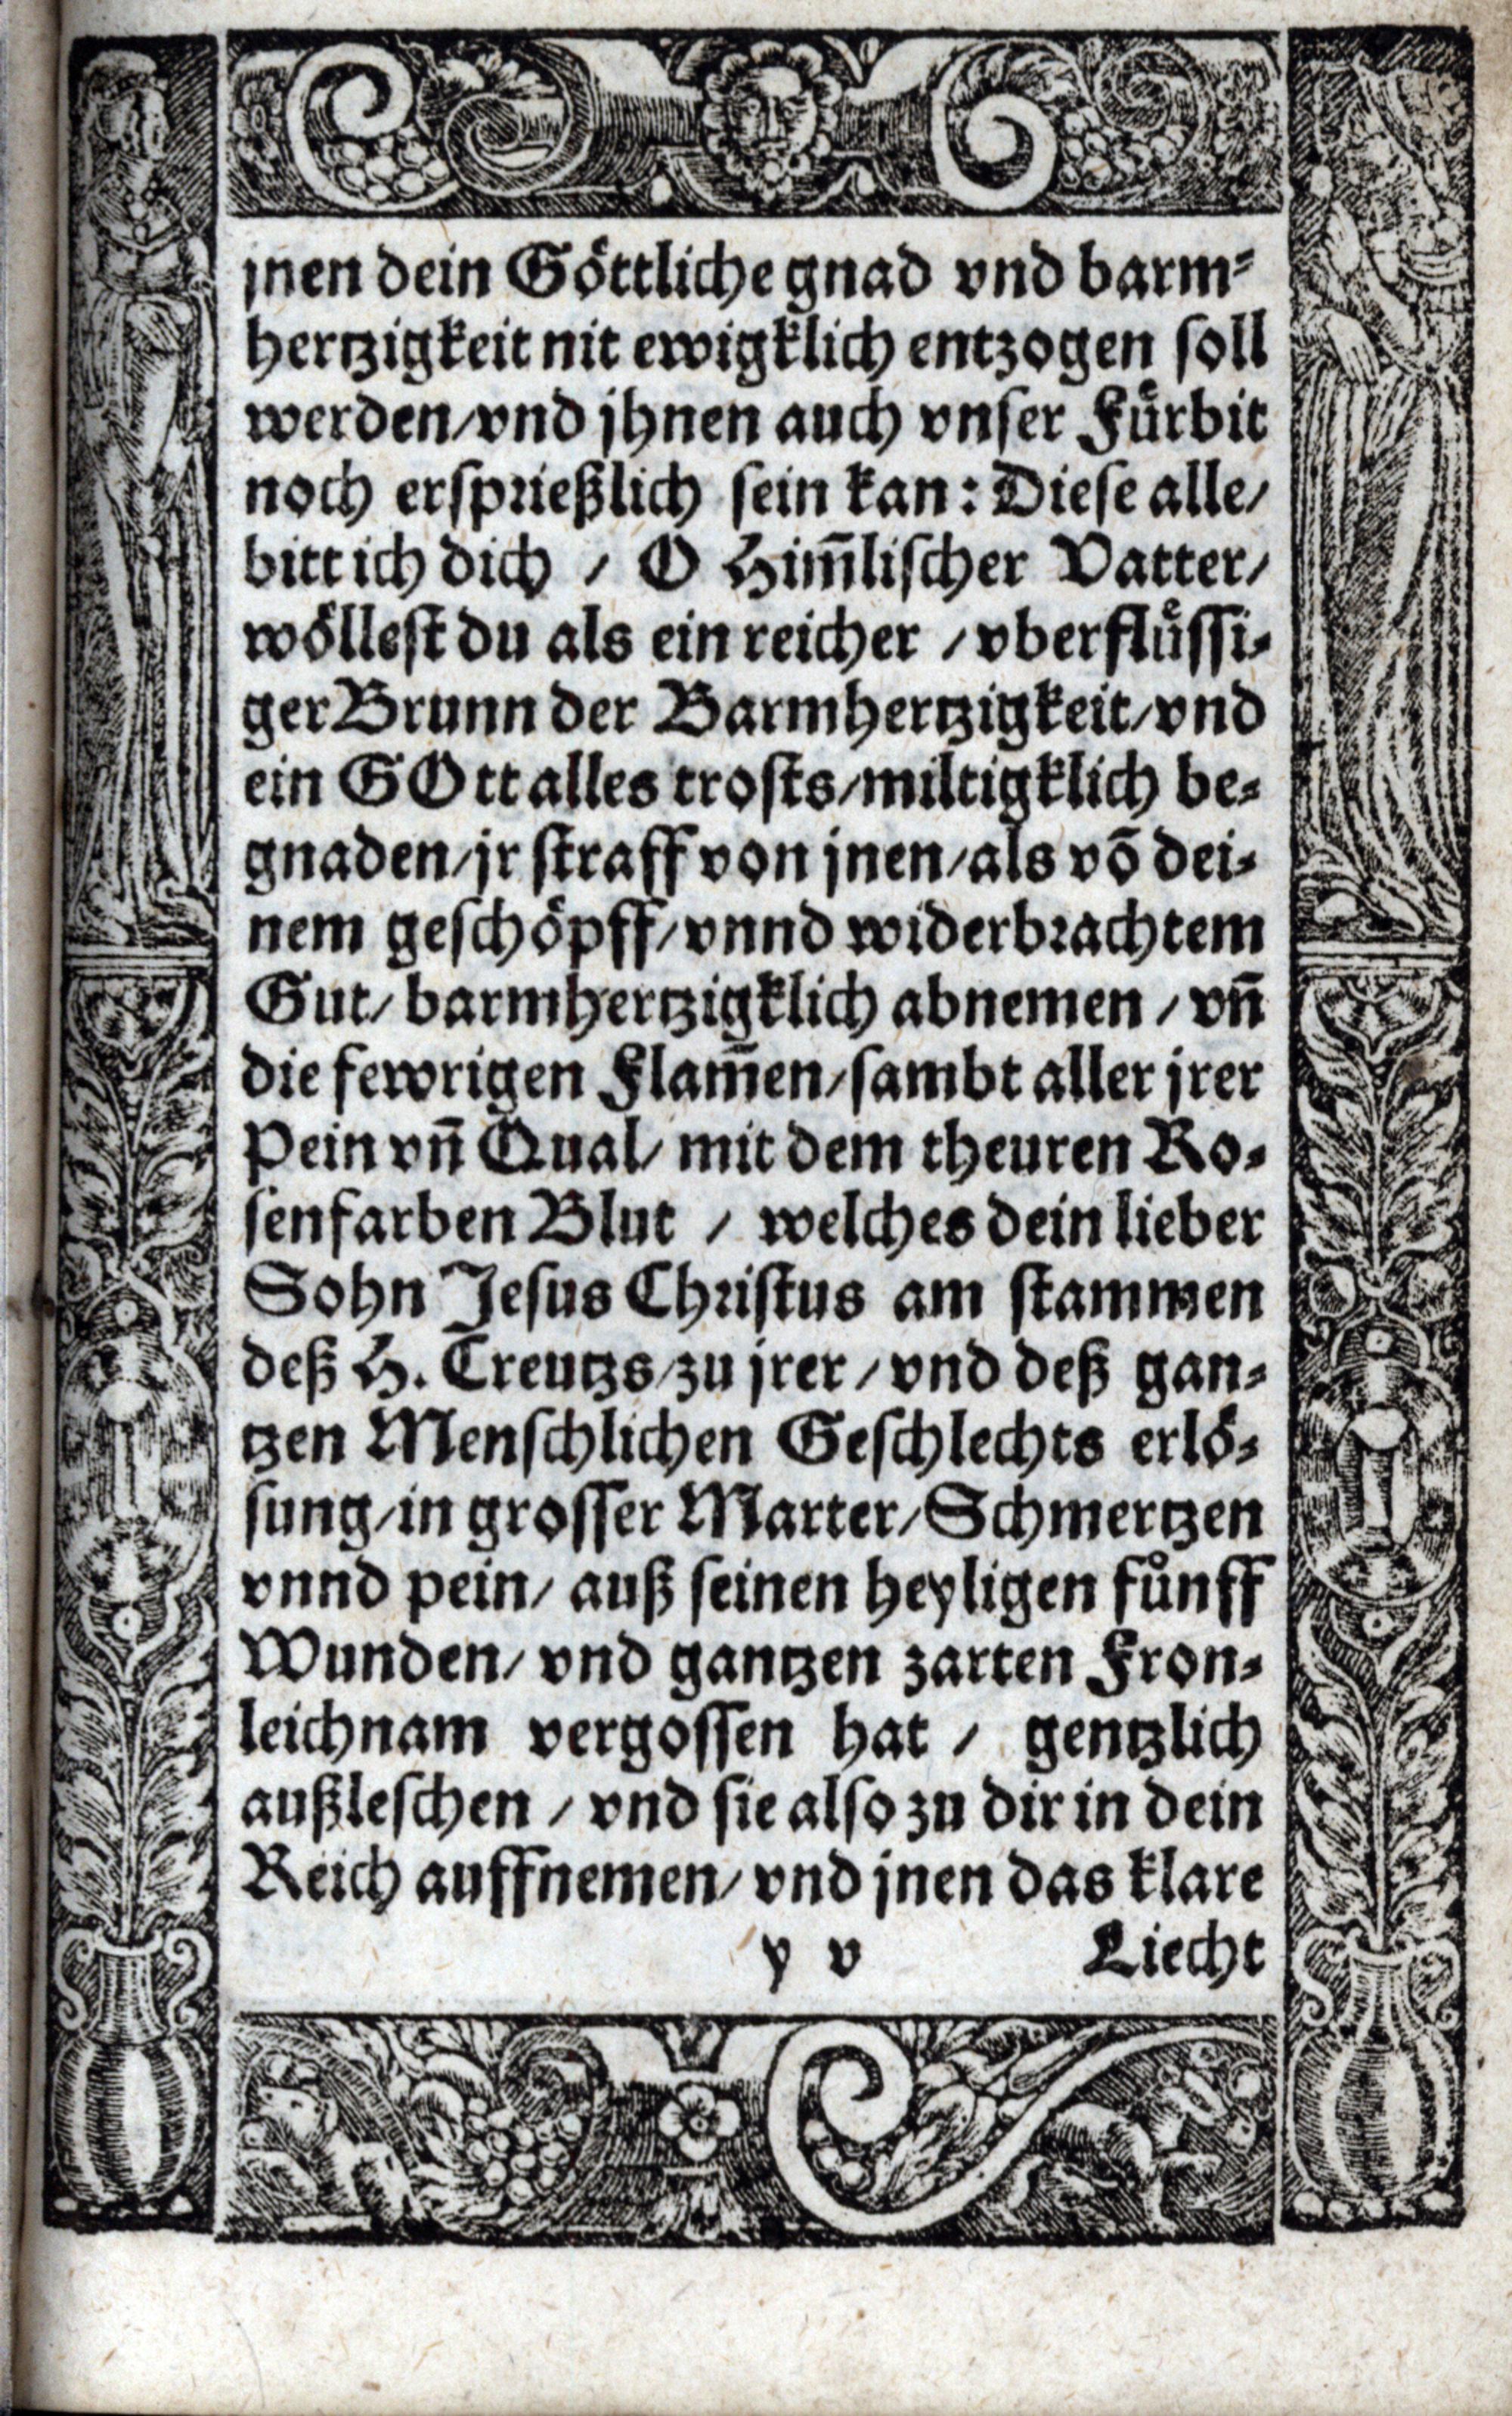 jnen dein Göttliche gnad vnd barm⸗
hertzigkeit nit ewigklich entzogen soll
werden/vnd jhnen auch vnser Fürbit
noch ersprießlich sein kan: Diese alle/
bitt ich dich / O Him̃lischer Vatter/
wöllest du als ein reicher / vberflüssi⸗
ger Brunn der Barmhertzigkeit/vnd
ein GOtt alles trosts/miltigklich be⸗
gnaden/jr straff von jnen/als võ dei⸗
nem geschöpff/vnnd widerbrachtem
Gut/ barmhertzigklich abnemen / vñ
die fewrigen Flam̃en/sambt aller jrer
Pein vñ Qual/ mit dem theuren Ro⸗
senfarben Blut / welches dein lieber
Sohn Jesus Christus am stammen
deß H. Creutzs/zu jrer / vnd deß gan⸗
tzen Menschlichen Geschlechts erlö⸗
sung/in grosser Marter/Schmertzen
vnnd pein/ auß seinen heyligen fůnff
Wunden/ vnd gantzen zarten Fron⸗
leichnam vergossen hat / gentzlich
außleschen / vnd sie also zu dir in dein
Reich auffnemen/ vnd jnen das klare
y v Liecht